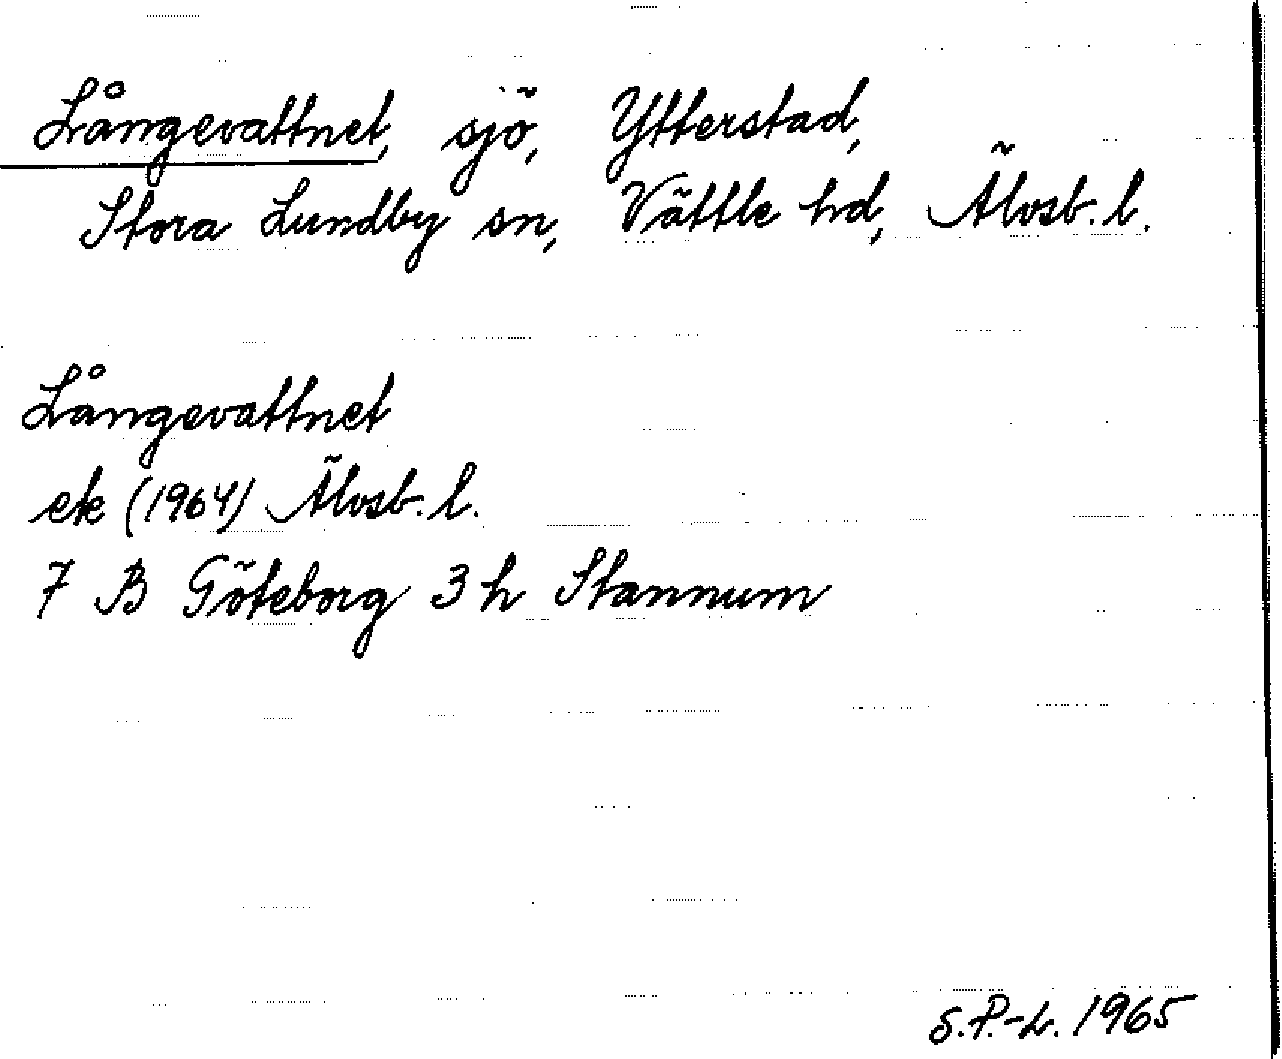 Långevattnet, sjö, Ytterstad,
Stora Lundby sn, Vättle hd, Älvsb. l.
Långevattnet
ek (1964) Älvsb. l.
7 B Göteborg 3 h Stannum
S.P.-L. 1965